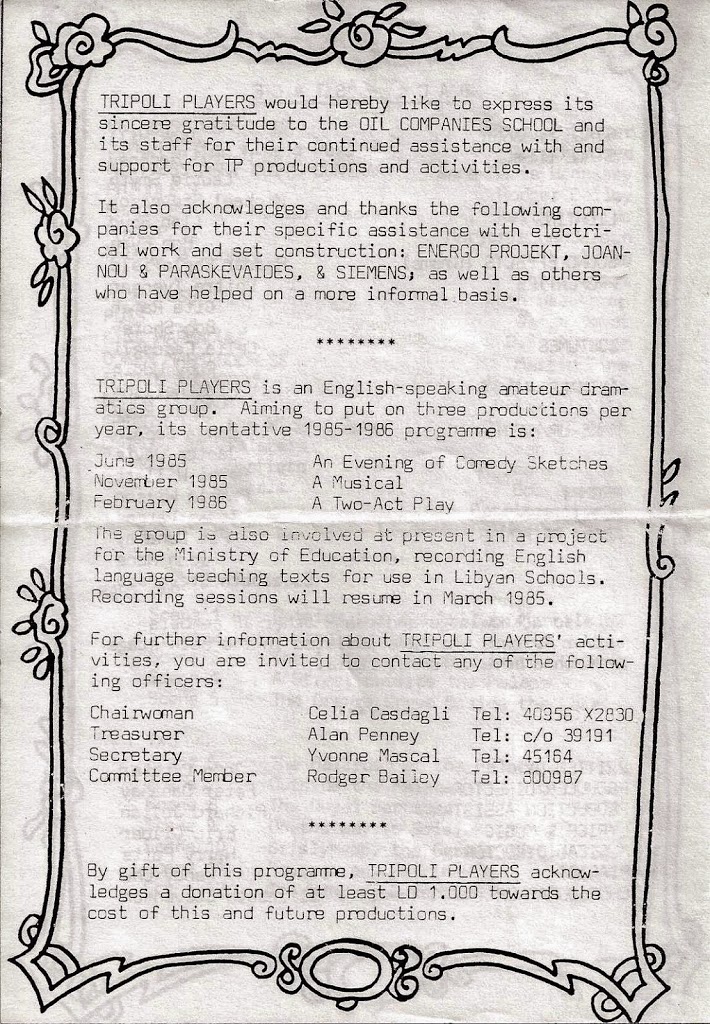 TRIPOLI PLAYERS would hereby like to express its
sincere gratitude to the OIL COMPANIES SCHOOL and
its staff for their continued assistance with and
support for TP productions and activities.
It also acknowledges and thanks the following com-
panies for their specific assistance with electri-
cal work and set construction: ENERGO PROJEKT, JOAN-
NOU & PARASKEVAIDES, & SIEMENS; as well as others
who have helped on a more informal basis.
********
TRIPOLI PLAYERS is an English-speaking amateur dram-
atics group. Aiming to put on three productions per
year, its tentative 1985-1986 programme is:
June 1985 An Evening of Comedy Sketches
November 1985 A Musical
February 1986 A Two-Act Play
The group is also involved at present in a project
for the Ministry of Education, recording English
language teaching texts for use in Libyan Schools.
Recording sessions will resume in March 1985.
For further information about TRIPOLI PLAYERS' acti-
vities, you are invited to contact any of the follow-
ing officers:
Chairwoman Celia Casdagli Tel: 40356 X2830
Treasurer Alan Penney Tel: c/o 39191
Secretary Yvonne Mascal Tel: 45164
Committee Member Rodger Bailey Tel: 800987
********
By gift of this programme, TRIPOLI PLAYERS acknow-
ledges a donation of at least LD 1.000 towards the
cost of this and future productions.